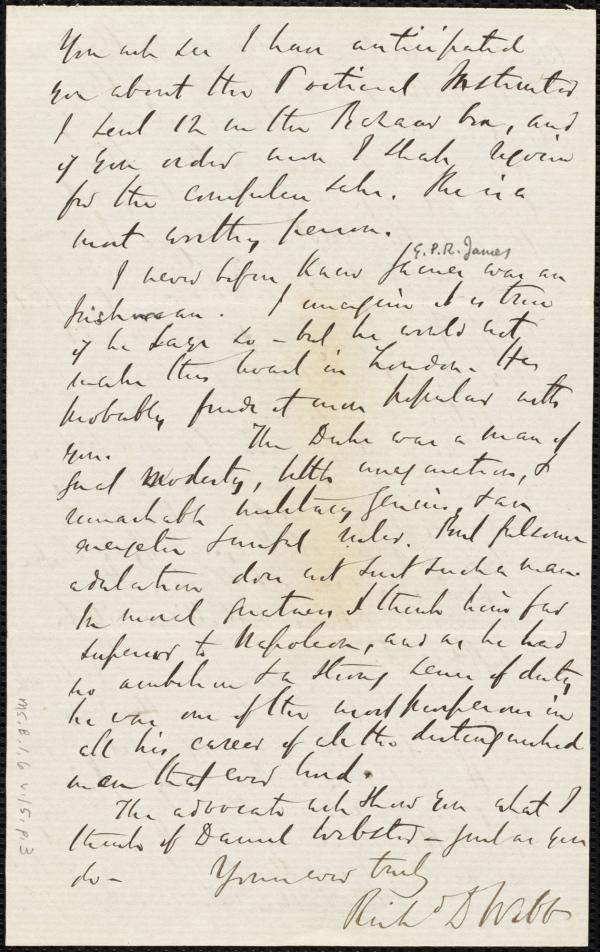 You will see I have anticipated
you about the Poetical Instructed
I sent 12 in the Bazaar box, and
if you order more I shall rejoice
for the compiler's sake. She is a
most worthy person.
G.P.R. James
I never before knew James was an
Irishman. I imagine it is true
if he says so – but he would not
make this boast in London. He
probably finds it more popular with
you. The Duke was a man of
great modesty, little imagination, &
remarkable military genius, & an
needful rules. But fulsome
adulation does not suit such a man.
In moral greatness I think him far
superior to Napoleon, and as he had
no ambition & a strong sense of duty
he was one of the most prosperous in
all his career of all the distinguished
men that ever lived.
The advocate will show you what I
think of Daniel Webster – just as you
do – Yours ever truly
Richd D Webb
MS.B.1.6 v.15, p.3